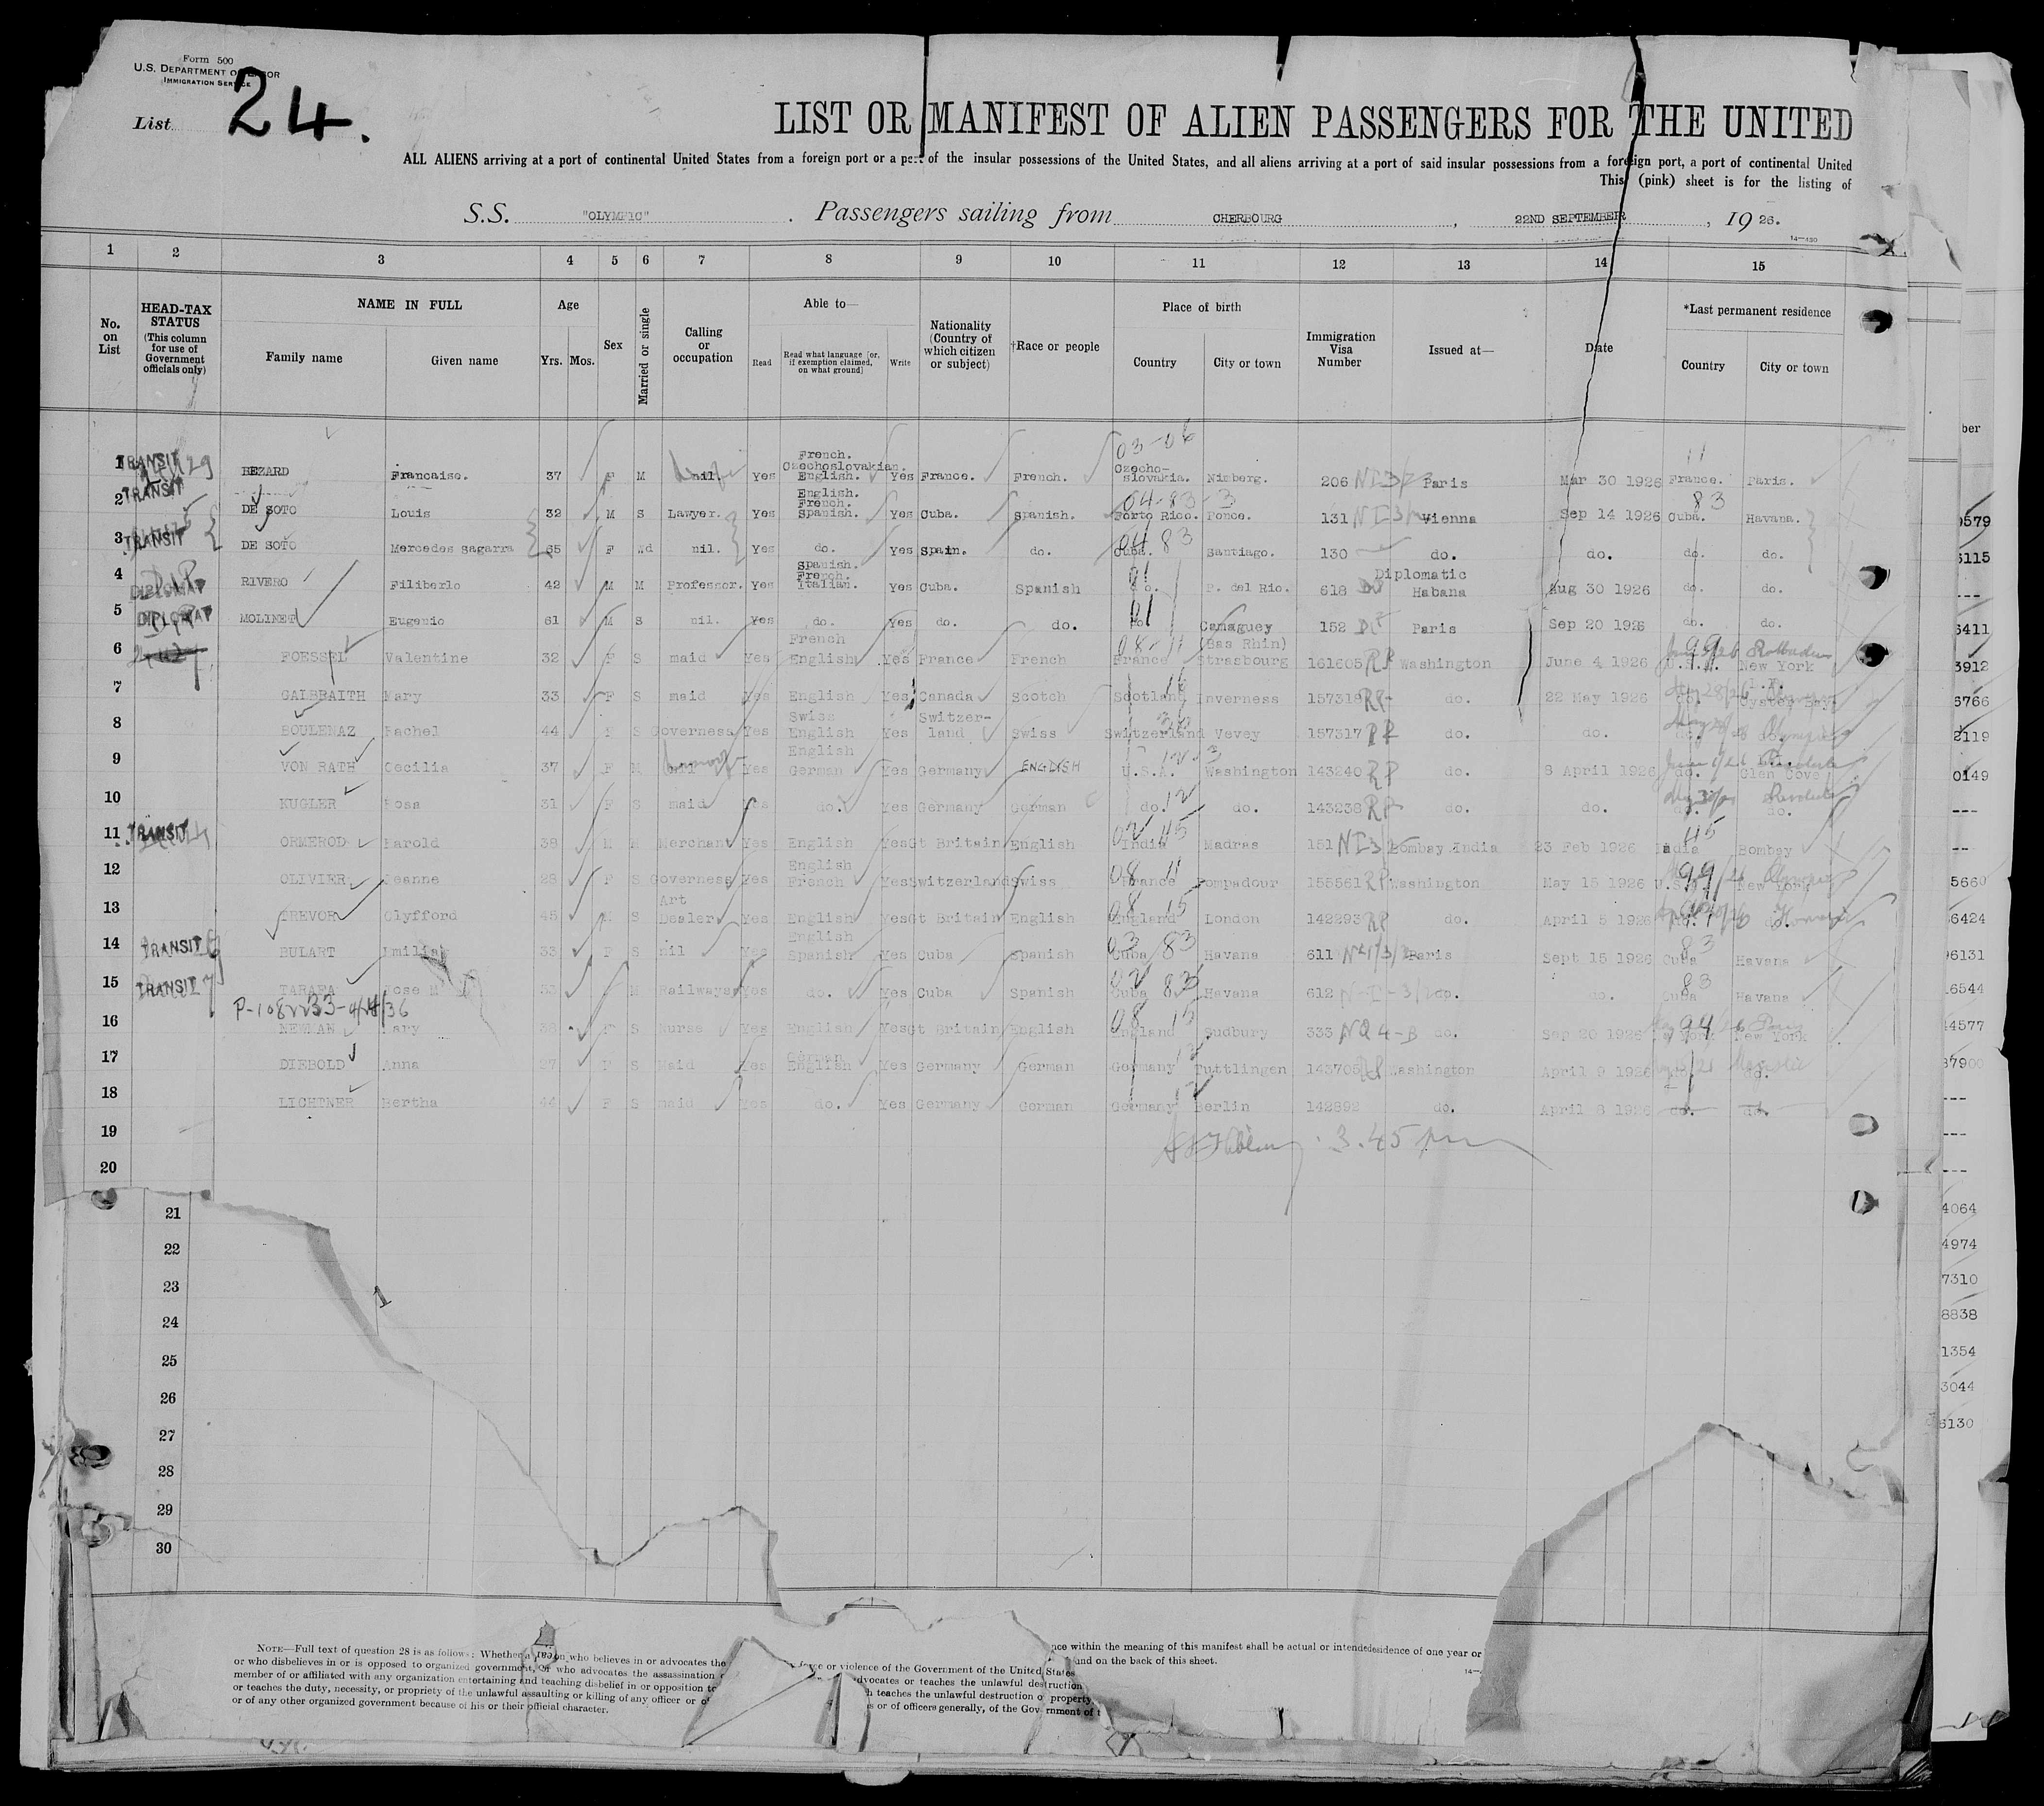 Form 500
U.S. DEPARTMENT OF LABOR
IMMIGRATION SERVICE
List 24.
LIST OR MANIFEST OF ALIEN PASSENGERS FOR THE UNITED
ALL ALIENS arriving at a port of continental United States from a foreign port or a port of the insular possessions of the United States, and all aliens arriving at a port of said insular possessions from a foreign port, a port of continental United
This (pink) sheet is for the listing of
S.S. "OLYMPIC". Passengers sailing from CHERBOURG, 22ND SEPTEMBER, 1926.
14—430
1 2 3 4 5 6 7 8 9 10 11 12 13 14 15
No. on List
HEAD-TAX STATUS (This column for use of Government officials only)
NAME IN FULL
Family name Given name
Age
Yrs. Mos.
Sex
Married or single
Calling or occupation
Able to—
Read Read what language [or, if exemption claimed, on what ground] Write
Nationality (Country of which citizen or subject)
†Race or people
Place of birth
Country City or town
Immigration Visa Number
Issued at—
Date
*Last permanent residence
Country City or town
1 TRANSIT BEZARD Francaise. 37 F M nil. Yes French. Czechoslovakian. English. Yes France. French. 03-06 Czecho-slovakia. Nimberg. 206 NI3/2 Paris Mar 30 1926 11 France. Paris.
2 TRANSIT DE SOTO Louis 32 M S Lawyer. Yes English. French. Spanish. Yes Cuba. Spanish. 04-83-3 Porto Rico. Ponce. 131 Vienna Sep 14 1926 83 Cuba. Havana.
3 TRANSIT DE SOTO Mercedes Sagarra 65 F Wd nil. Yes do. Yes Spain. do. 04 83 Cuba. Santiago. 130 do. do. do. do.
4 DIPLOMAT RIVERO Filiberto 42 M M Professor. Yes Spanish. French. Italian. Yes Cuba. Spanish 01 do. P. del Rio. 618 Diplomatic Habana Aug 30 1926 do. do.
5 DIPLOMAT MOLINET Eugenio 61 M S nil. Yes do. Yes do. do. 01 do. Camaguey 152 Paris Sep 20 1926 do. do.
6 FOESSEL Valentine 32 F S maid Yes French English Yes France French 08-11 France (Bas Rhin) Strasbourg 161605 RP Washington June 4 1926 99 U.S.A. New York
7 GALBRAITH Mary 33 F S maid Yes English Yes Canada Scotch Scotland Inverness 157318 RP do. 22 May 1926 do. L.I. Oyster Bay
8 BOULENAZ Rachel 44 F S Governess Yes Swiss English Yes Switzer-land Swiss Switzerland Vevey 157317 RP do. do. do. Olympic
9 VON RATH Cecilia 37 F M nil Yes English German Yes Germany ENGLISH 12-3 U.S.A. Washington 143240 RP do. 8 April 1926 do. Glen Cove
10 KUGLER Rosa 31 F S maid Yes do. Yes Germany German 12 do. do. 143238 RP do. do. do. do.
11 TRANSIT ORMEROD Harold 38 M M Merchant Yes English Yes Gt Britain English 02 45 India Madras 151 NI3/2 Bombay India 23 Feb 1926 45 India Bombay
12 OLIVIER Jeanne 28 F S Governess Yes English French Yes Switzerland Swiss 08 11 France Pompadour 155561 RP Washington May 15 1926 99 U.S.A. New York Olympic
13 TREVOR Clyfford 45 M S Art Dealer Yes English Yes Gt Britain English 08 15 England London 142293 RP do. April 5 1926 do. do.
14 TRANSIT BULART Emilia 33 F S nil Yes English Spanish Yes Cuba Spanish 03 83 Cuba Havana 611 Paris Sept 15 1926 83 Cuba Havana
15 TRANSIT TARAFA Jose M 53 M Railways Yes do. Yes Cuba Spanish 02 83 Cuba Havana 612 N-I-3/2 do. do. 83 Cuba Havana
P-108233-4/14/36
16 NEWMAN Mary 38 F S Nurse Yes English Yes Gt Britain English 08 15 England Sudbury 333 NQ4-B do. Sep 20 1926 94 York New York
17 DIEBOLD Anna 27 F S Maid Yes German English Yes Germany German 12 Germany Tuttlingen 143705 RP Washington April 9 1926 do. do. Majestic
18 LICHTNER Bertha 44 F S maid Yes do. Yes Germany German Germany Berlin 142892 do. April 8 1926 do. do.
19
20
3.45 pm
21
22
23
24
25
26
27
28
29
30
ber
0579
5115
---
6411
3912
6766
2119
0149
---
---
5660
6424
96131
6544
44577
37900
---
---
---
4064
4974
7310
8838
1354
3044
5130
NOTE—Full text of question 28 is as follows: Whether a person who believes in or advocates the
or who disbelieves in or is opposed to organized government, or who advocates the assassination
member of or affiliated with any organization entertaining and teaching disbelief in or opposition to
or teaches the duty, necessity, or propriety of the unlawful assaulting or killing of any officer or of
or of any other organized government because of his or their official character.
force or violence of the Government of the United States
dvocates or teaches the unlawful destruction
h teaches the unlawful destruction o property,
s or of officers generally, of the Government of t
nce within the meaning of this manifest shall be actual or intended residence of one year or
und on the back of this sheet.